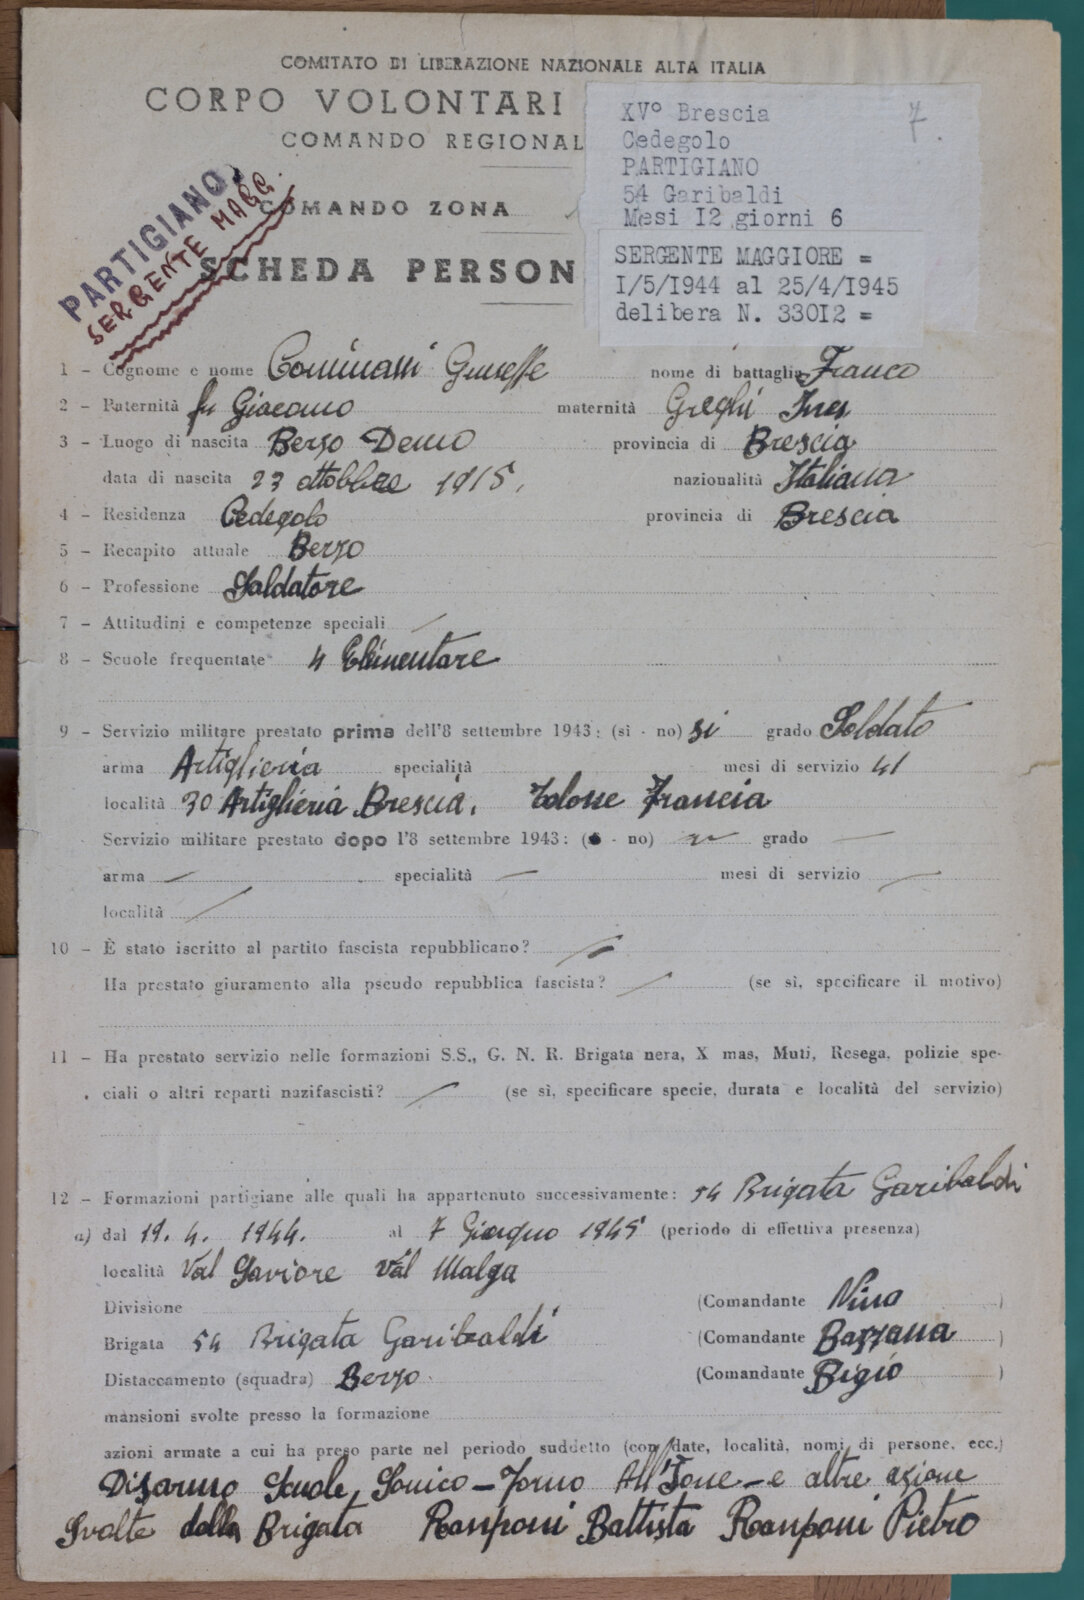 COMITATO DI LIBERAZIONE NAZIONALE ALTA ITALIA
CORPO VOLONTARI
COMANDO REGIONAL
COMANDO ZONA
SCHEDA PERSON
PARTIGIANO
SERGENTE MAGG.
XV° Brescia 7.
Cedegolo
PARTIGIANO
54 Garibaldi
Mesi I2 giorni 6
SERGENTE MAGGIORE =
I/5/I944 al 25/4/I945
delibera N. 330I2 =
1 - Cognome e nome Cominassi Giuseffe nome di battaglia Franco
2 - Paternità fu Giacomo maternità Greghi Ines
3 - Luogo di nascita Berzo Demo provincia di Brescia
data di nascita 23 ottobbre 1915. nazionalità Italiana
4 - Residenza Cedegolo provincia di Brescia
5 - Recapito attuale Berzo
6 - Professione Saldatore
7 - Attitudini e competenze speciali /
8 - Scuole frequentate 4 Elementare
9 - Servizio militare prestato prima dell'8 settembre 1943: (sì - no) si grado Soldato
arma Artiglieria specialità mesi di servizio 41
località 30 Artiglieria Brescia. Tolosse Francia
Servizio militare prestato dopo l'8 settembre 1943: ( - no) grado
arma / specialità — mesi di servizio /
località /
10 - È stato iscritto al partito fascista repubblicano? /
Ha prestato giuramento alla pseudo repubblica fascista? / (se sì, specificare il motivo)
11 - Ha prestato servizio nelle formazioni S.S., G. N. R. Brigata nera, X mas, Muti, Resega, polizie spe-
ciali o altri reparti nazifascisti? / (se sì, specificare specie, durata e località del servizio)
12 - Formazioni partigiane alle quali ha appartenuto successivamente: 54 Brigata Garibaldi
a) dal 19. 4. 1944. al 7 Giugno 1945 (periodo di effettiva presenza)
località Val Saviore Val Malga
Divisione (Comandante Nino )
Brigata 54 Brigata Garibaldi (Comandante Bazzana )
Distaccamento (squadra) Berzo. (Comandante Bigio )
mansioni svolte presso la formazione
azioni armate a cui ha preso parte nel periodo suddetto (con date, località, nomi di persone, ecc.)
Disarmo Scuole Sonico - Forno All'Ione - e altre azione
Svolte dalla Brigata Ramponi Battista Ramponi Pietro